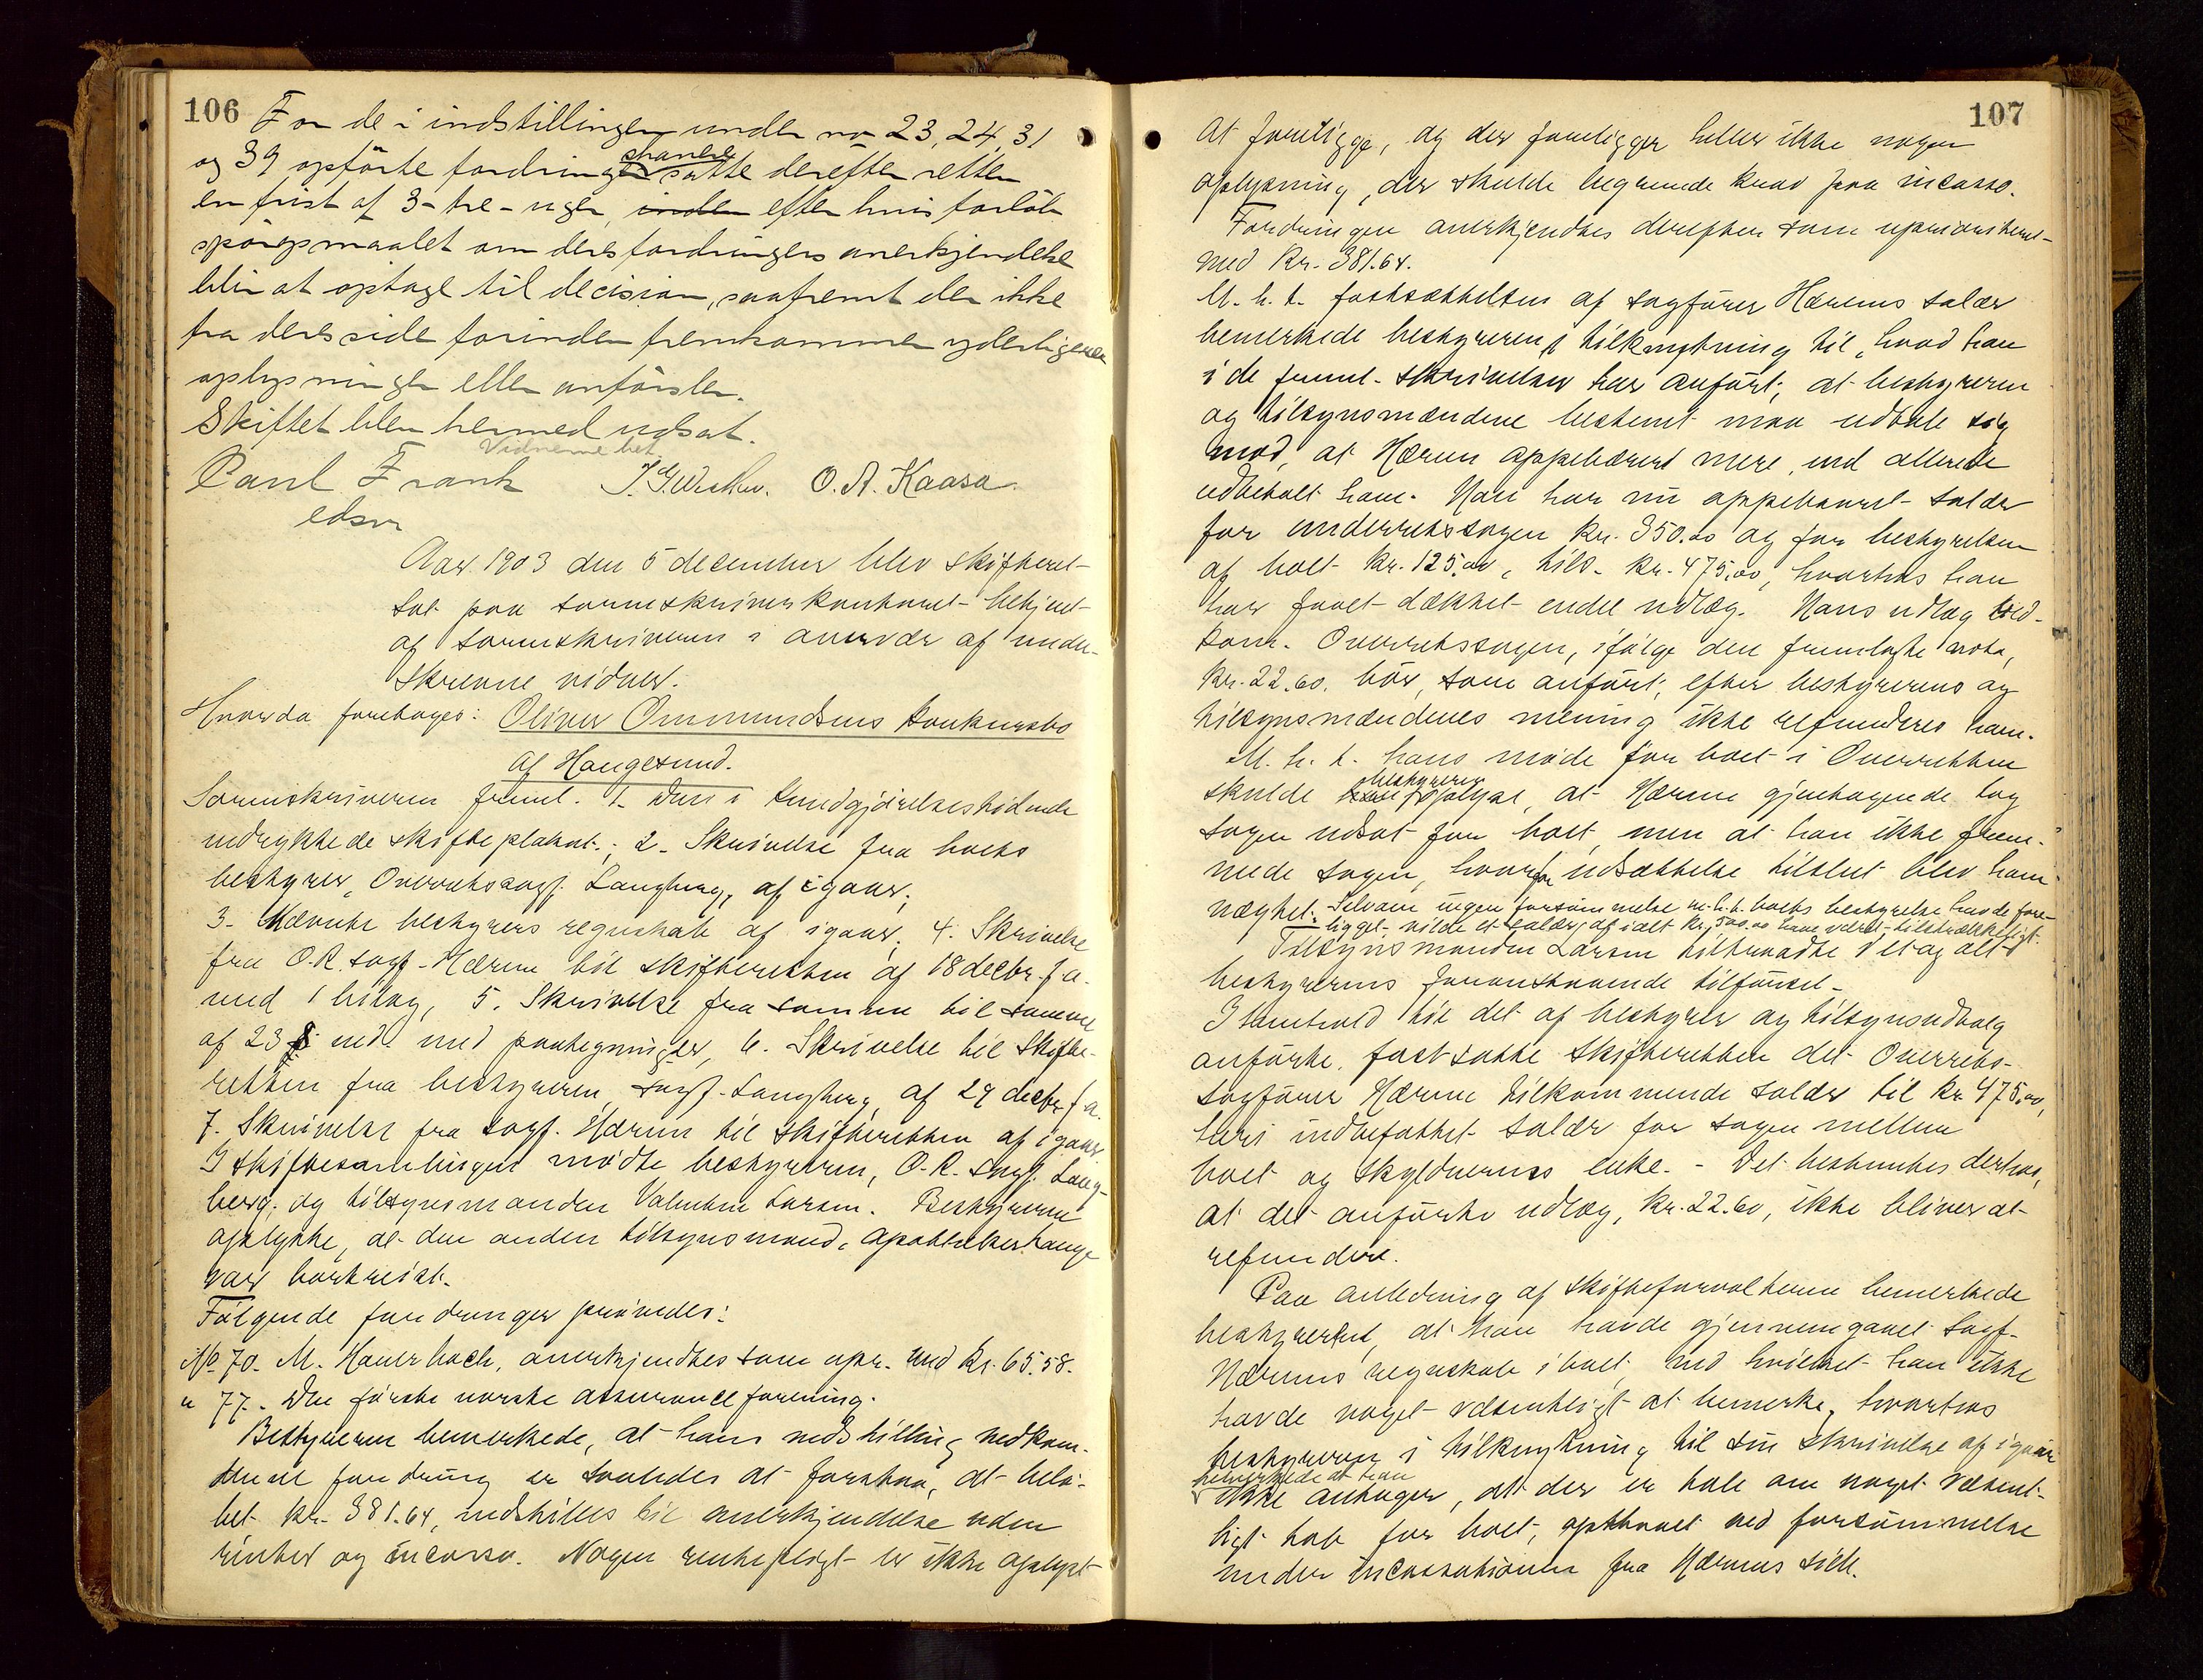 106
For de i indstillingen under no 23, 24, 31
og 39 opförte fordringshavere satte derefter retten
en frist af 3-tre-uger, inden efter hvis forlöb
spörgsmaalet om deres fordringers anerkjendelse
blir at optage til decision, saafremt der ikke
fra deres side forinden fremkommer yderligere
oplysninger eller anförsler.
Skiftet blev hermed udsat.
Vidnerne bet
Paul Frank O. A. Kaasa
edsv
Aar 1903 den 5 december blev skifteret
sat paa sorenskriverkontoret betjent
af sorenskriveren i overvær af under-
skrevne vidner.
Hvorda foretoges: Oliver Ommundsens konkursbo
af Haugesund.
Sorenskriveren freml. 1. Den i kundgjörelsestidende
indrykkede skifteplakat; 2. Skrivelse fra boets
bestyrer, Overretssagf. Langberg, af igaar;
3. Nævnte bestyrers regnskab af igaar. 4. Skrivelse
fra O.R.sagf. Hærem til skifteretten af 18 decbr. f.a.
med 1 bilag, 5. Skrivelse fra samme til samme
af 23 s. md. med paategninger, 6. Skrivelse til Skifte-
retten fra bestyreren, sagf. Langberg af 29 decbr. f.a.
7. Skrivelse fra sagf. Hærem til skifteretten af igaar.
I skiftesamlingen mödte bestyreren, O.R. sagf. Lang-
berg, og tilsynsmanden Valentin Larsen. Bestyreren
oplyste, at den anden tilsynsmand, apotheker Hauge
var bortreist.
Fölgende fordringer prövedes:
No. 70. M. Hauerbach, anerkjendtes som upr. med kr. 65.58.
" 77. Den förste norske assuranceforening.
Bestyreren bemerkede, at hans indstilling vedkom-
mende fordring er saaledes at forstaa, at belö-
bet kr. 381.64, indstilles til anerkjendelse uden
renter og incasso. Nogen rentepligt er ikke oplyst
107
at foreligge, og der foreligger heller ikke nogen
oplysning, der skulde begrunde krav paa incasso.
Fordringen anerkjendtes derefter som uprioriteret
med kr. 381.64.
M. h. t. fastsættelsen af sagförer Hærems salær
bemerkede bestyreren, i tilknytning til, hvad han
i de freml. skrivelser har anfört, at bestyreren
og tilsynsmændene bestemt maa udtale sig
mod, at Hærem oppebærer mere, end allerede
udbetalt ham. Han har nu oppebaaret salær
for underretssagen kr. 350.00 og for bestyrelsen
af boet kr. 125.00, tils. kr. 475.00, hvorhos han
har faaet dækket endel udlæg. Hans udlæg ved-
kom. Overretssagen, ifölge den fremlagte nota,
kr. 22.60, bör, som anfört, efter bestyrerens og
tilsynsmændenes mening ikke refunderes ham.
M. h. t. hans möde for boet i Overretten
skulde bestyreren oplyse, at Hærem gjentagende tog
sagen udsat for boet, men at han ikke frem-
mede sagen, hvorfor udsættelse tilslut blev ham
nægtet. Selvom ingen forsömmelse m.h.t. boets bestyrelse havde fore-
ligget, vilde et salær af ialt kr. 500.00 have været tilstrækkeligt.
Tilsynsmanden Larsen tiltraadte i et og alt
bestyrerens foranstaaende tilförsel.
I henhold til det af bestyrer og tilsynsudvalg
anförte, fastsatte skifteretten det Overrets-
sagförer Hærem tilkommende salær til kr 475.00,
heri indbefattet salær for sagen mellem
boet og skyldnerens enke. - Det bestemtes derhos,
at det anförte udlæg, kr. 22.60, ikke bliver at
refundere.
Paa anledning af skifteforvalteren bemerkede
bestyreren, at han havde gjennemgaaet sagf.
Hærems regnskab i boet, ved hvilket han ikke
havde noget væsentligt at bemerke, hvorhos
bestyreren i tilknytning til sin skrivelse af igaar
bemerkede at han
ikke antager, at der er tale om noget væsent-
ligt tab for boet, opstaaet ved forsömmelse
under incassationen fra Hærems side.